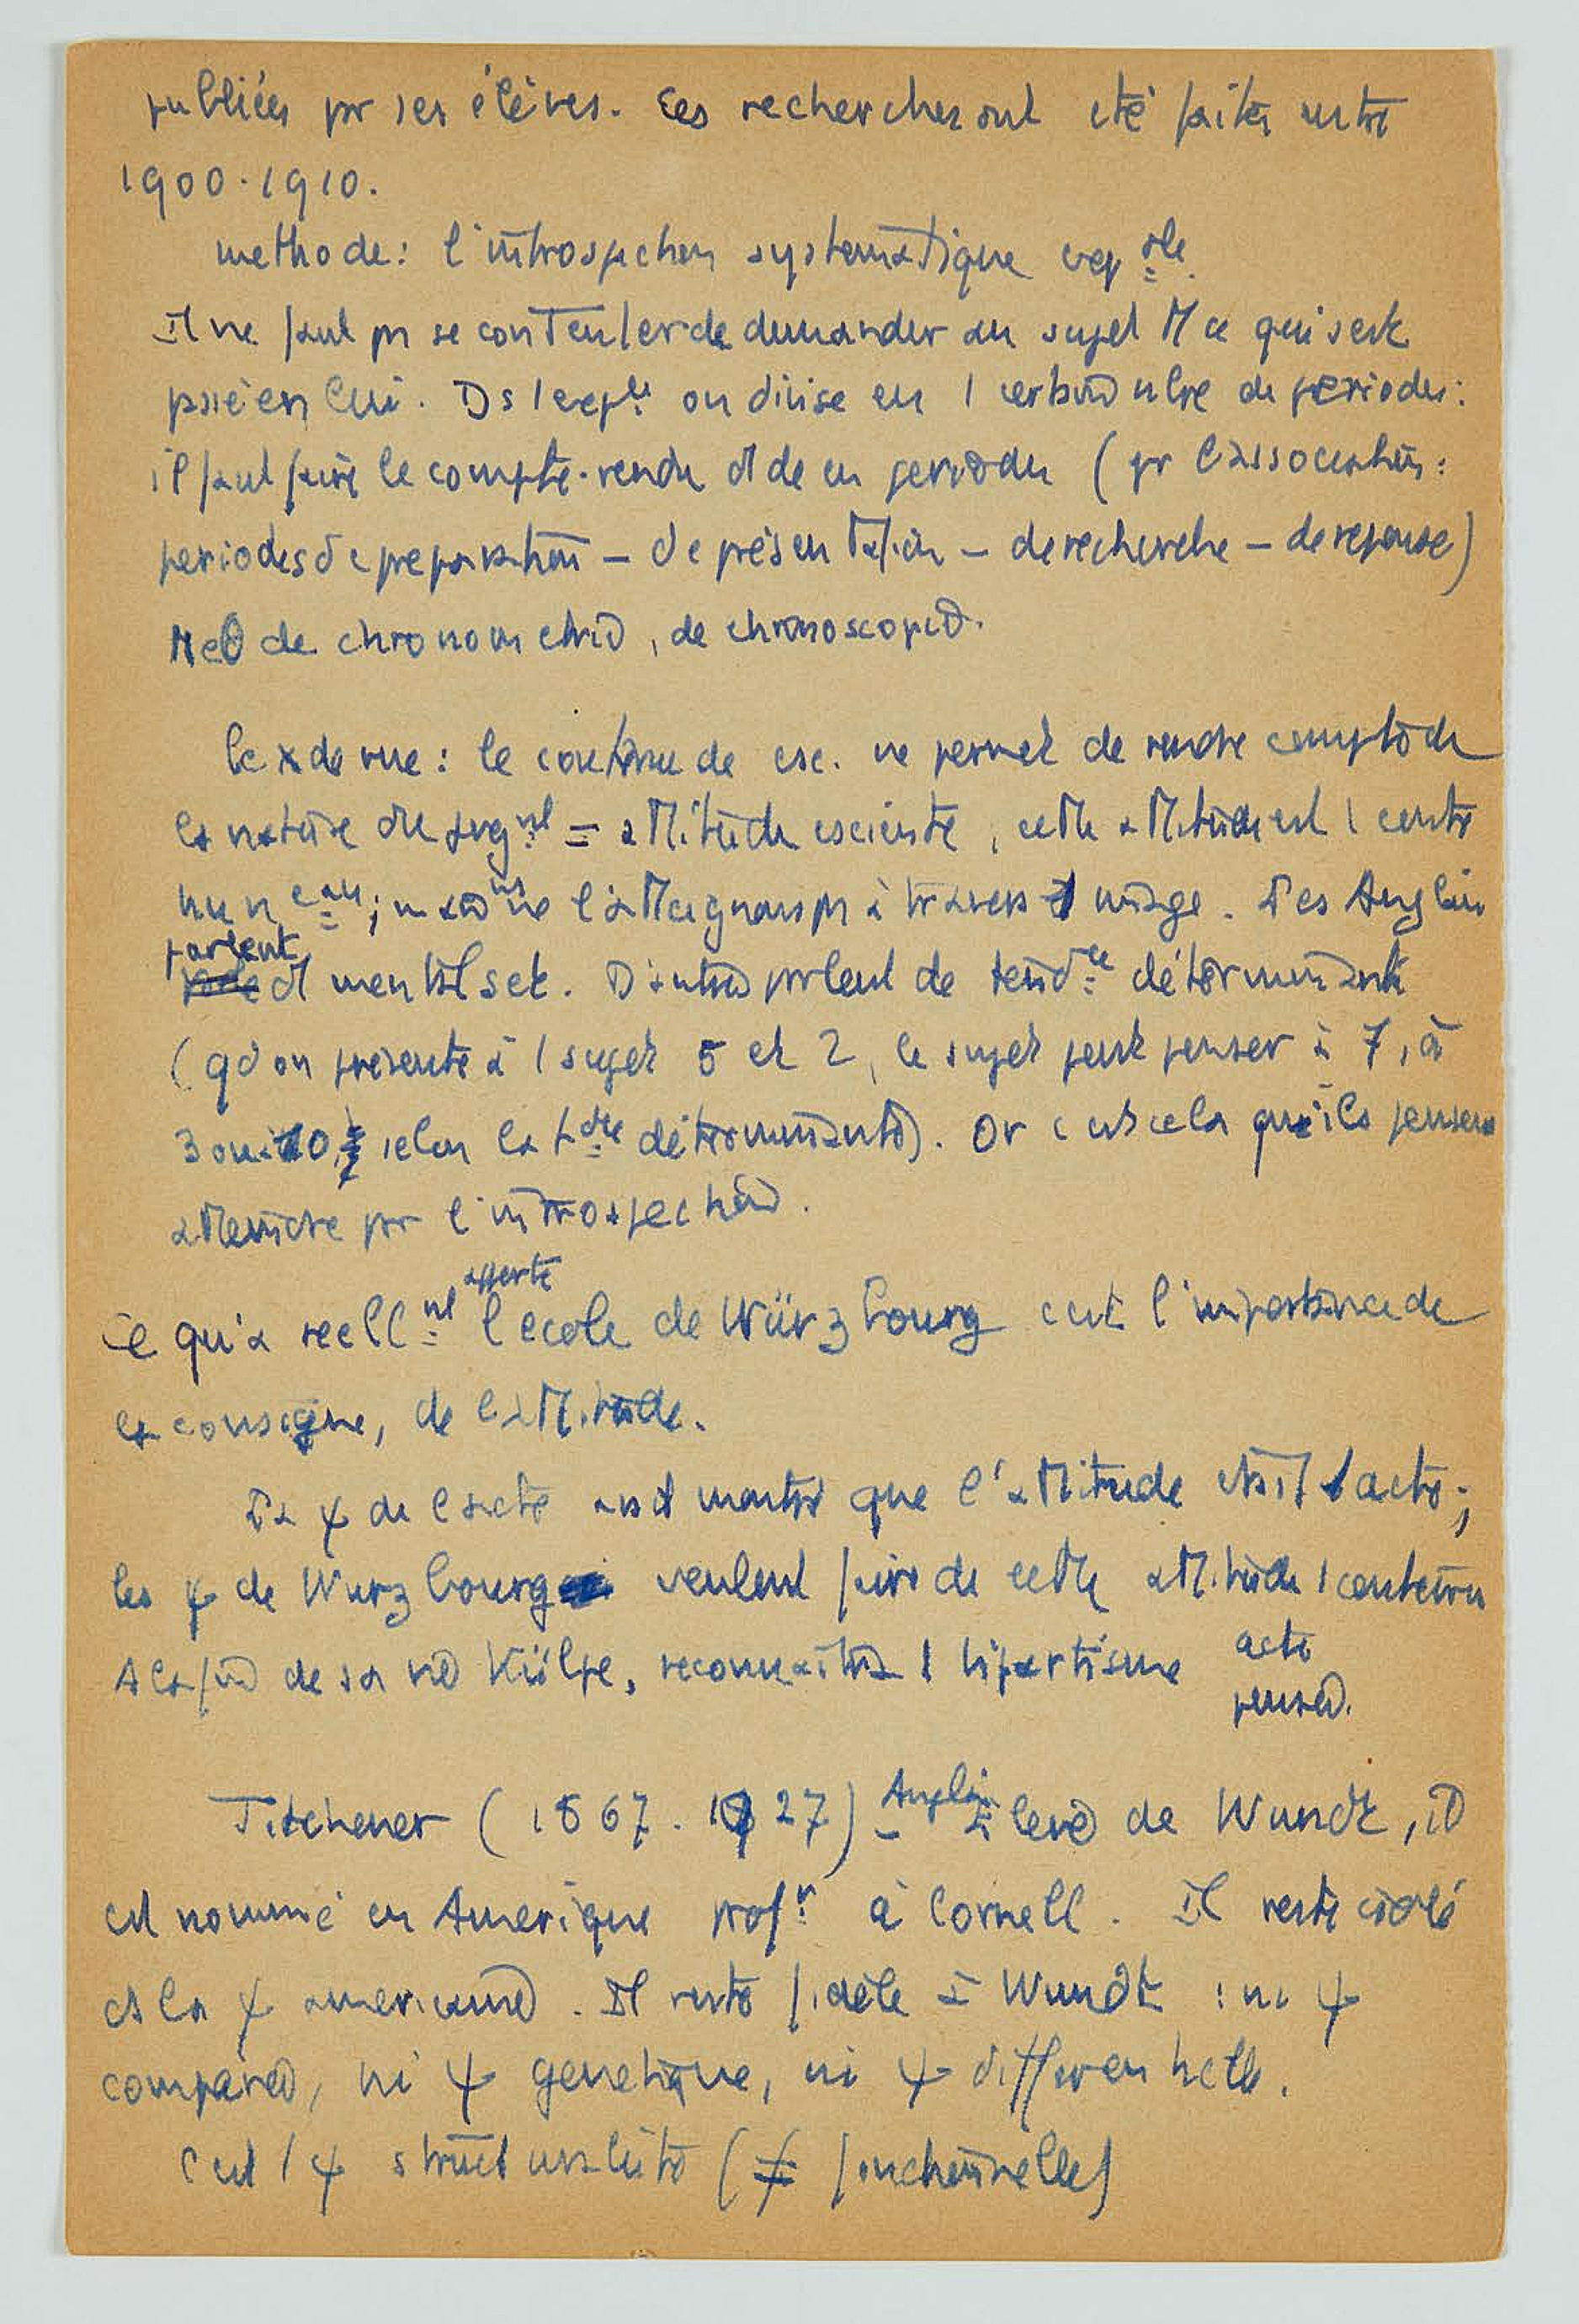 publiées pr ses élèves. Ces recherches ont été faites entre
1900-1910.
methode: l'introspection systématique exp ale.
Il ne faut ps se contenter de demander au sujet tt ce qui s'est
passé en lui. Ds l'expce on divise en 1 certain nbre de périodes:
il faut faire le compte-rendu de ces périodes (pr l'association:
periodes de préparation – de présentation – de recherche – de réponse)
de chronométrie, de chronoscopie.
le x de vue: le contenu de csc. ne permet de rendre compte de
la nature du jugnt = attitude csciente, cette attitude est 1 conte
nu n eau; ns ne l'atteignons ps à travers 1 image. Les Anglais
parlent d mental set. D'autres parlent de tendce déterminante
(qd on présente à 1 sujet 5 et 2, le sujet peut penser à 7, à
3 ou à 10, selon la tdce déterminante). Or c'est cela qu'ils pensent
atteindre par l'introspection.
Ce qu'a reellnt apporté l'école de Würzbourg c'est l'importance de
la consigne, de l'attitude.
La ψ de l'acte avait montré que l'attitude était 1 acte;
les ψ de Wurzbourg veulent faire de cette attitude 1 contenu
A la fin de sa vie Külpe, reconnaîtra 1 bipartisme acte
pensée.
Titchener (1867-1927) – Anglais élève de Wundt, il
est nommé en Amerique profr à Cornell. Il reste isolé
ds la ψ americaine. Il reste fidèle à Wundt : ni ψ
comparée, ni ψ genetique, ni ψ differentielle.
C'est 1 ψ structuraliste (≠ fonctionnelle)